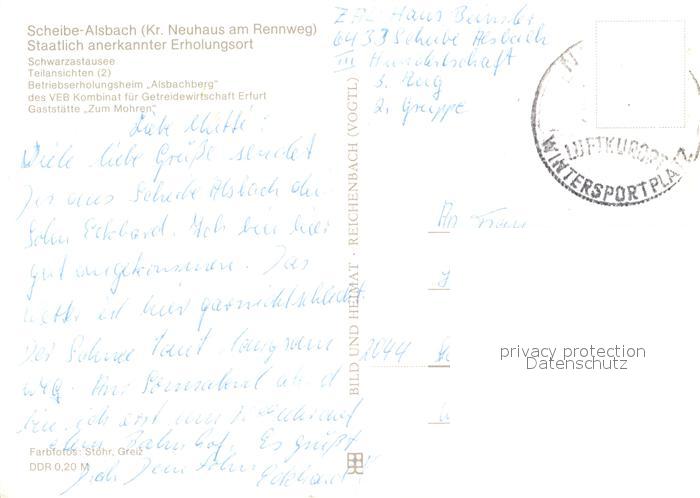 Scheibe-Alsbach (Kr. Neuhaus am Rennweg)
Staatlich anerkannter Erholungsort
Schwarzastausee
Teilansichten (2)
Betriebserholungsheim „Alsbachberg"
des VEB Kombinat für Getreidewirtschaft Erfurt
Gaststätte „Zum Mohren"
Liebe Mutti!
Viele liebe Grüße sendet
Dir aus Scheibe Alsbach dein
Sohn Eckhard. Ich bin hier
gut angekommen. Das
Wetter ist hier garnicht schlecht.
Der Schnee taut langsam
weg. Am Sonnabend
bin ich erst um
dem Bahnhof. Es grüßt
Dich Dein Sohn
Eckhard
Farbfotos: Stöhr, Greiz
DDR 0,20 M
BILD UND HEIMAT · REICHENBACH (VOGTL)
Hans
6433 Scheibe Alsbach
III Hundertschaft
3. Zug
2. Gruppe
LUFTKURORT
WINTERSPORTPLATZ
An Frau
privacy protection
Datenschutz